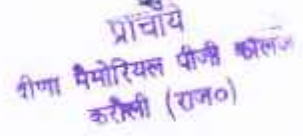 प्राचार्य
रीणा मैमोरियल पीजी कॉलेज
करौली (राज०)